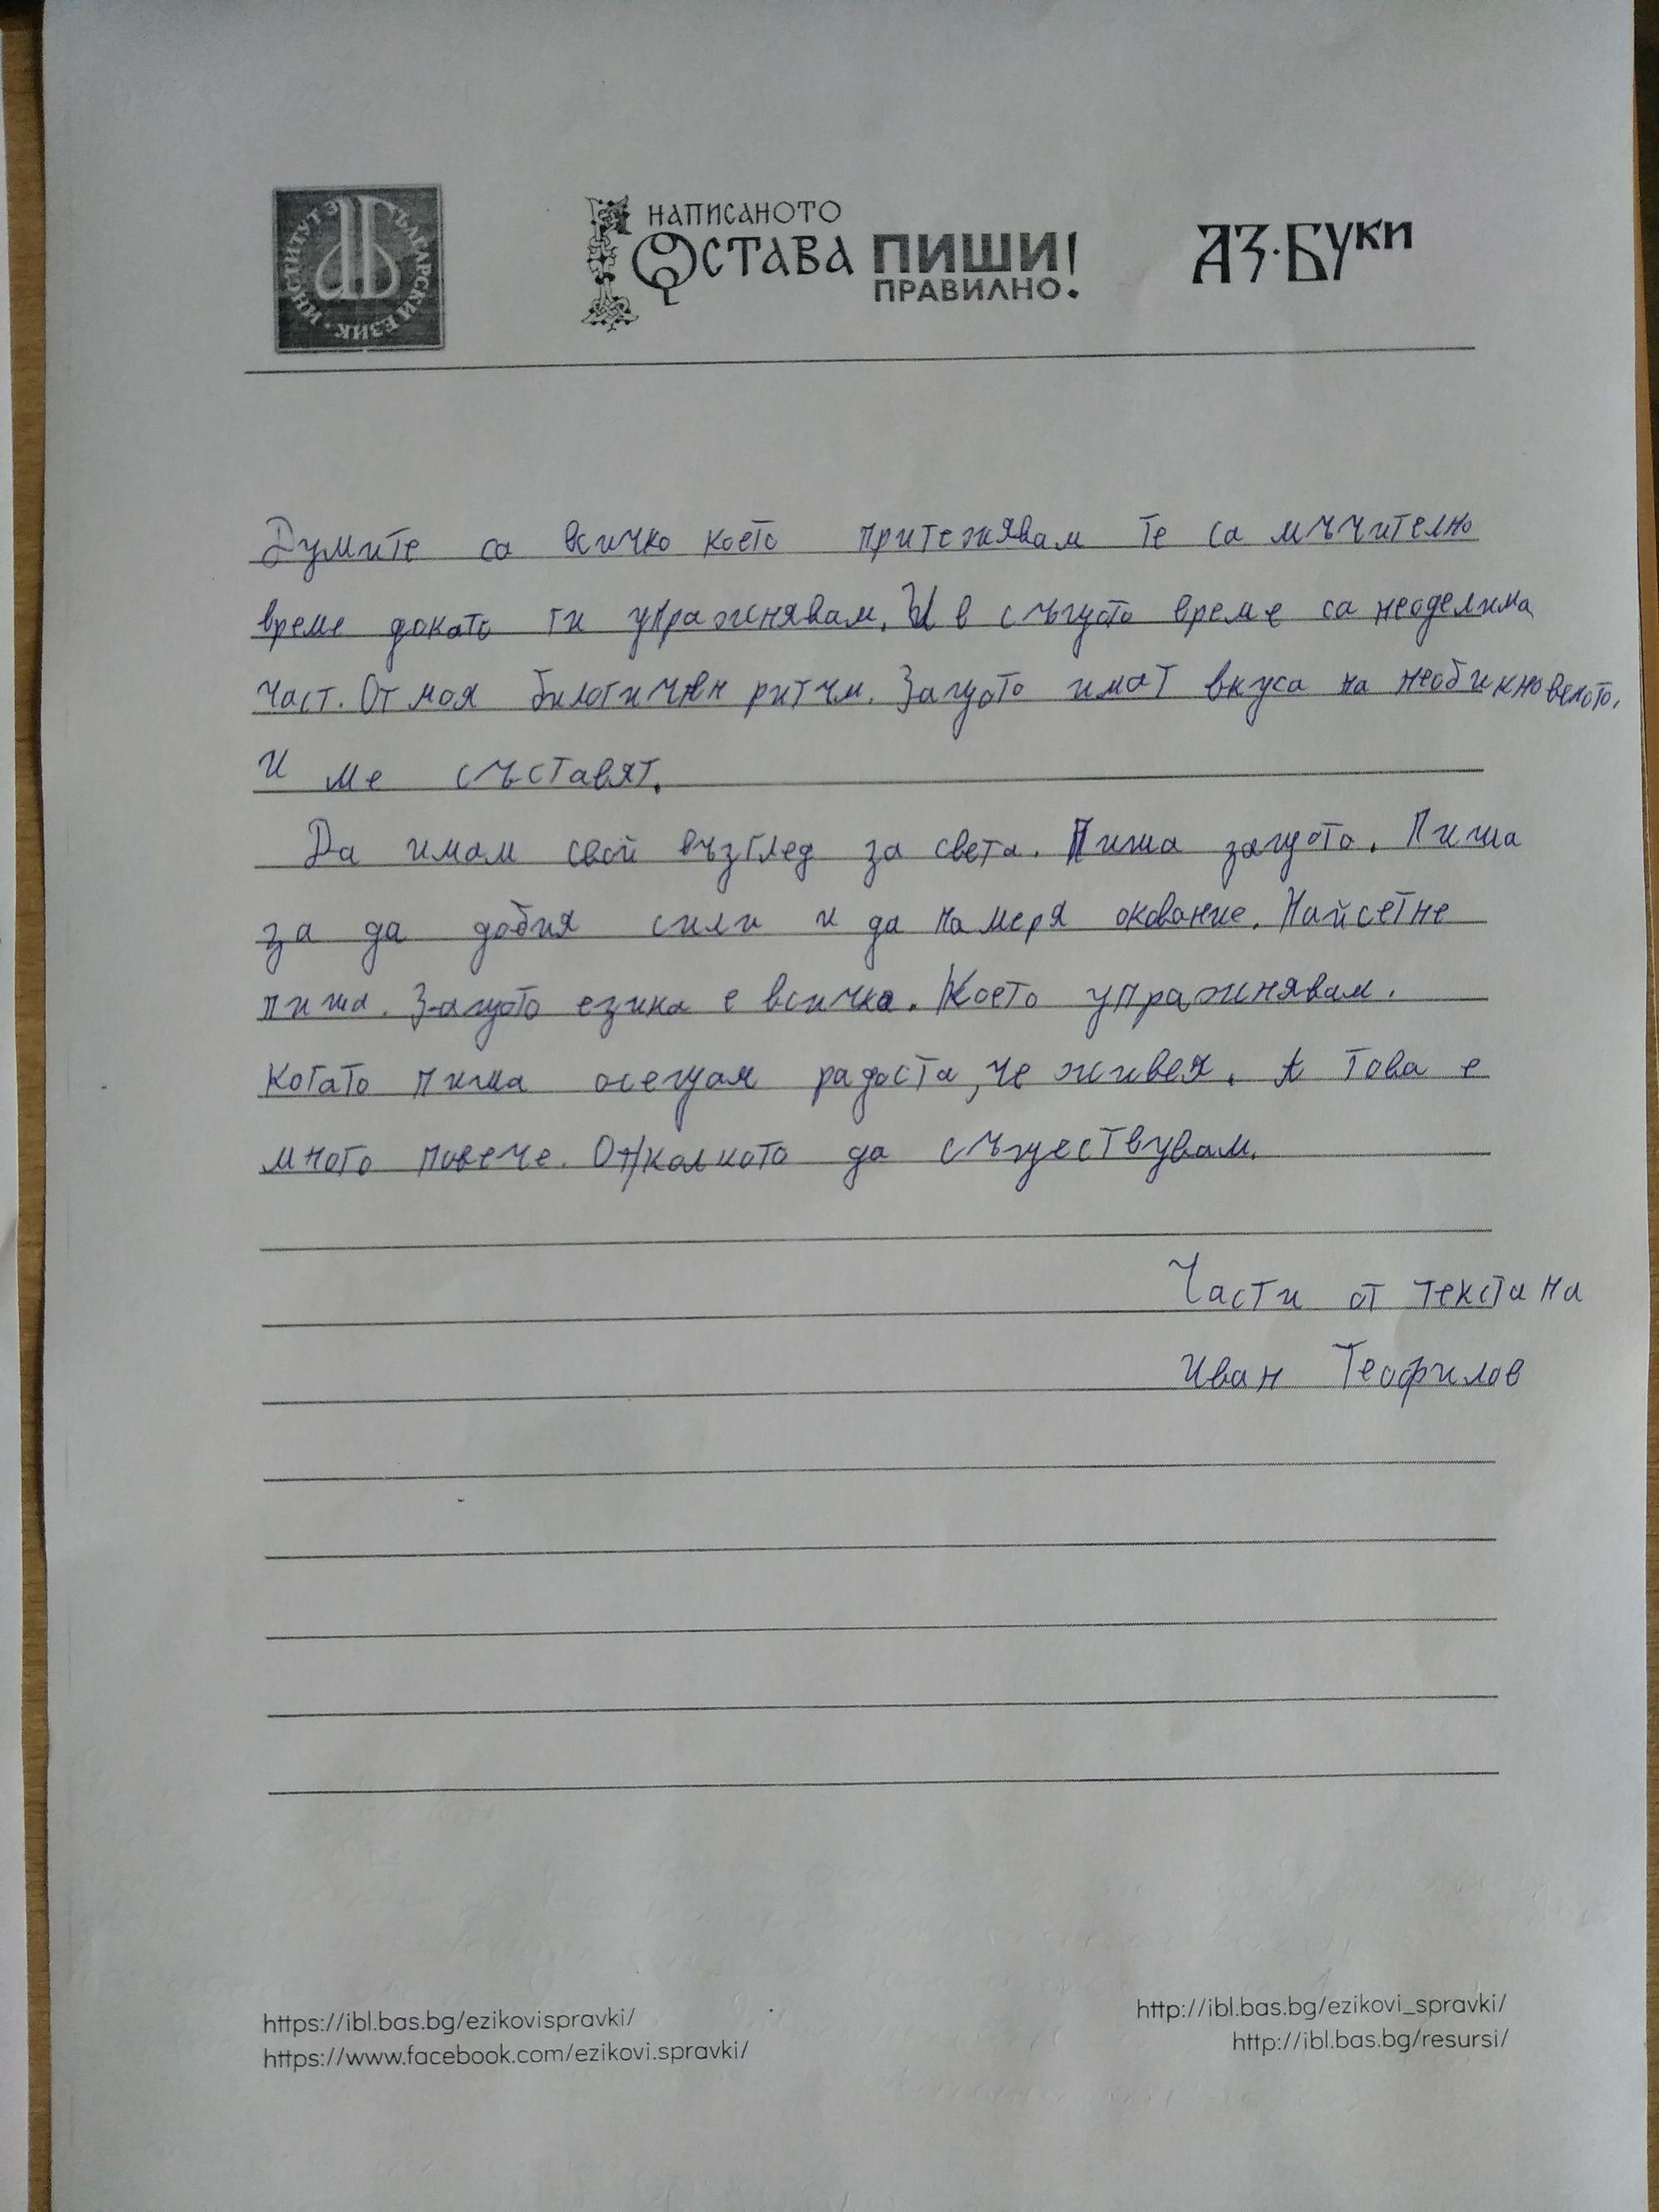 ИНСТИТУТ ЗА БЪЛГАРСКИ ЕЗИК
НАПИСАНОТО
ОСТАВА ПИШИ!
ПРАВИЛНО.
АЗ·БУКИ
Думите са всичко което притежявам те са мъчително
време докато ги упражнявам. И в същото време са неоделима
част. От моя билогичен ритъм. Защото имат вкуса на необикновеното.
и ме съставят.
Да имам свой възглед за света. Пиша защото. Пиша
за да добия сили и да намеря окование. Найсетне
пиша. Защото езика е всичко. Което упражнявам.
Когато пиша осещам радоста, че живея. А това е
много повече. Отколкото да съществувам.
Части от текста на
Иван Теофилов
https://ibl.bas.bg/ezikovispravki/
http://ibl.bas.bg/ezikovi_spravki/
https://www.facebook.com/ezikovi.spravki/
http://ibl.bas.bg/resursi/